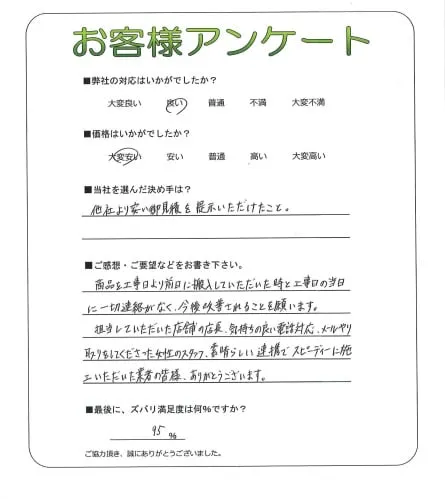 お客様アンケート
■弊社の対応はいかがでしたか?
大変良い 良い 普通 不満 大変不満
■価格はいかがでしたか?
大変安い 安い 普通 高い 大変高い
■当社を選んだ決め手は?
他社より安い御見積を提示いただけたこと。
■ご感想・ご要望などをお書き下さい。
商品を工事日より前日に搬入していただいた時と工事日の当日
に一切連絡がなく、今後改善されることを願います。
担当していただいた店舗の店長、気持ちの良い電話対応、メールやり
取りをしてくださった女性のスタッフ、素晴らしい連携でスピーディーに施
工いただいた業者の皆様、ありがとうございます。
■最後に、ズバリ満足度は何%ですか?
95 %
ご協力頂き、誠にありがとうございました。